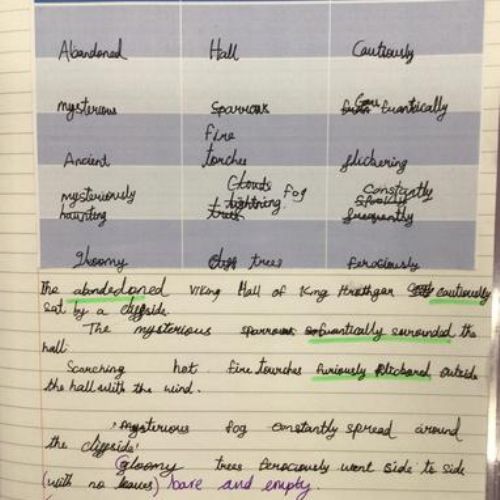 Abandoned Hall Cautiously
mysterious sparrows frantically
fire
Ancient torches flickering
Clouds fog Constantly
mysteriously lightning
haunting trees frequently
gloomy trees ferociously
The abandedoned Viking Hall of King Hrothgar cautiously
sat by a cliffside.
The mysterious sparrows frantically surrounded the
hall
Scorching hot fire tourches furiously flickered outside
the hall with the wind.
mysterious fog constantly spread around
the cliffside!
Gloomy trees ferociously went side to side
(with no leaves) bare and empty.